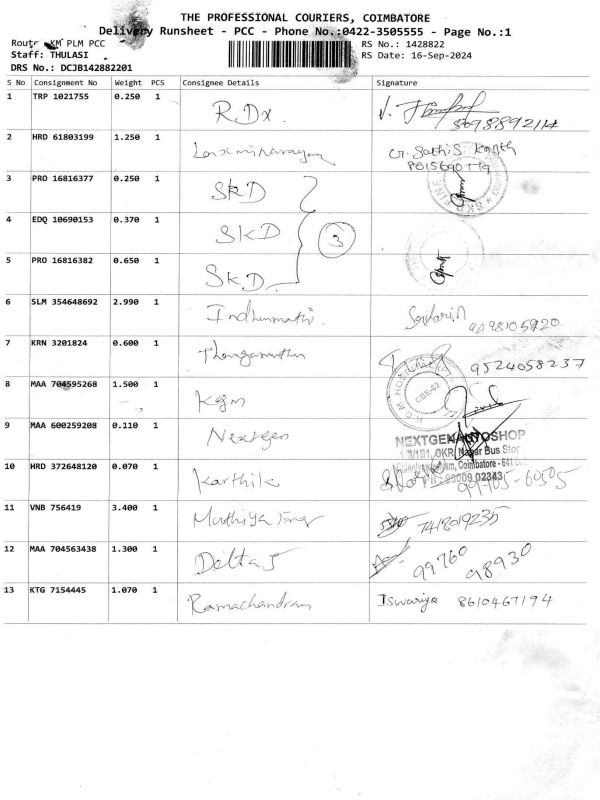 THE PROFESSIONAL COURIERS, COIMBATORE
Delivery Runsheet - PCC - Phone No.:0422-3505555 - Page No.:1
Route KM PLM PCC
RS No.: 1428822
Staff: THULASI
RS Date: 16-Sep-2024
DRS No.: DCJB142882201
S No Consignment No Weight PCS Consignee Details Signature
1 TRP 1021755 0.250 1 RDx.
2 HRD 61803199 1.250 1 Laxminarayan G. Sathis Kanth
3 PRO 16816377 0.250 1 SKD
4 EDQ 10690153 0.370 1 SKD 3
5 PRO 16816382 0.650 1 SKD
6 SLM 354648692 2.990 1 Indhumathi
7 KRN 3201824 0.600 1 Thangamuthu 9524058237
8 MAA 704595268 1.500 1 KGM
9 MAA 600259208 0.110 1 Nextgen
NEXTGEN AUTOSHOP
Nagar Bus Stop
Coimbatore - 641
10 HRD 372648120 0.070 1 Karthik
11 VNB 756419 3.400 1 7418019235
12 MAA 704563438 1.300 1 Delta J 99760 98930
13 KTG 7154445 1.070 1 Ramachandran Iswariya 8610467194